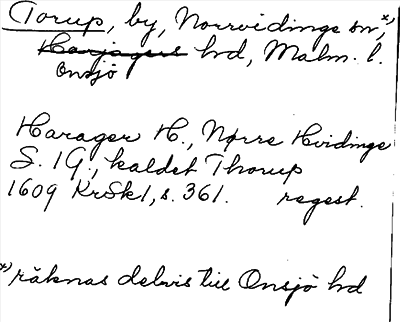 Torup, by, Norrvidinge sn,x)
Harjagers hd, Malm. l.
Onsjö
Harager H., Nørre Hvidinge
S. 1 G., kaldet Thorup
1609 KrSk1, s. 361. regest.
x) räknas delvis till Onsjö hd